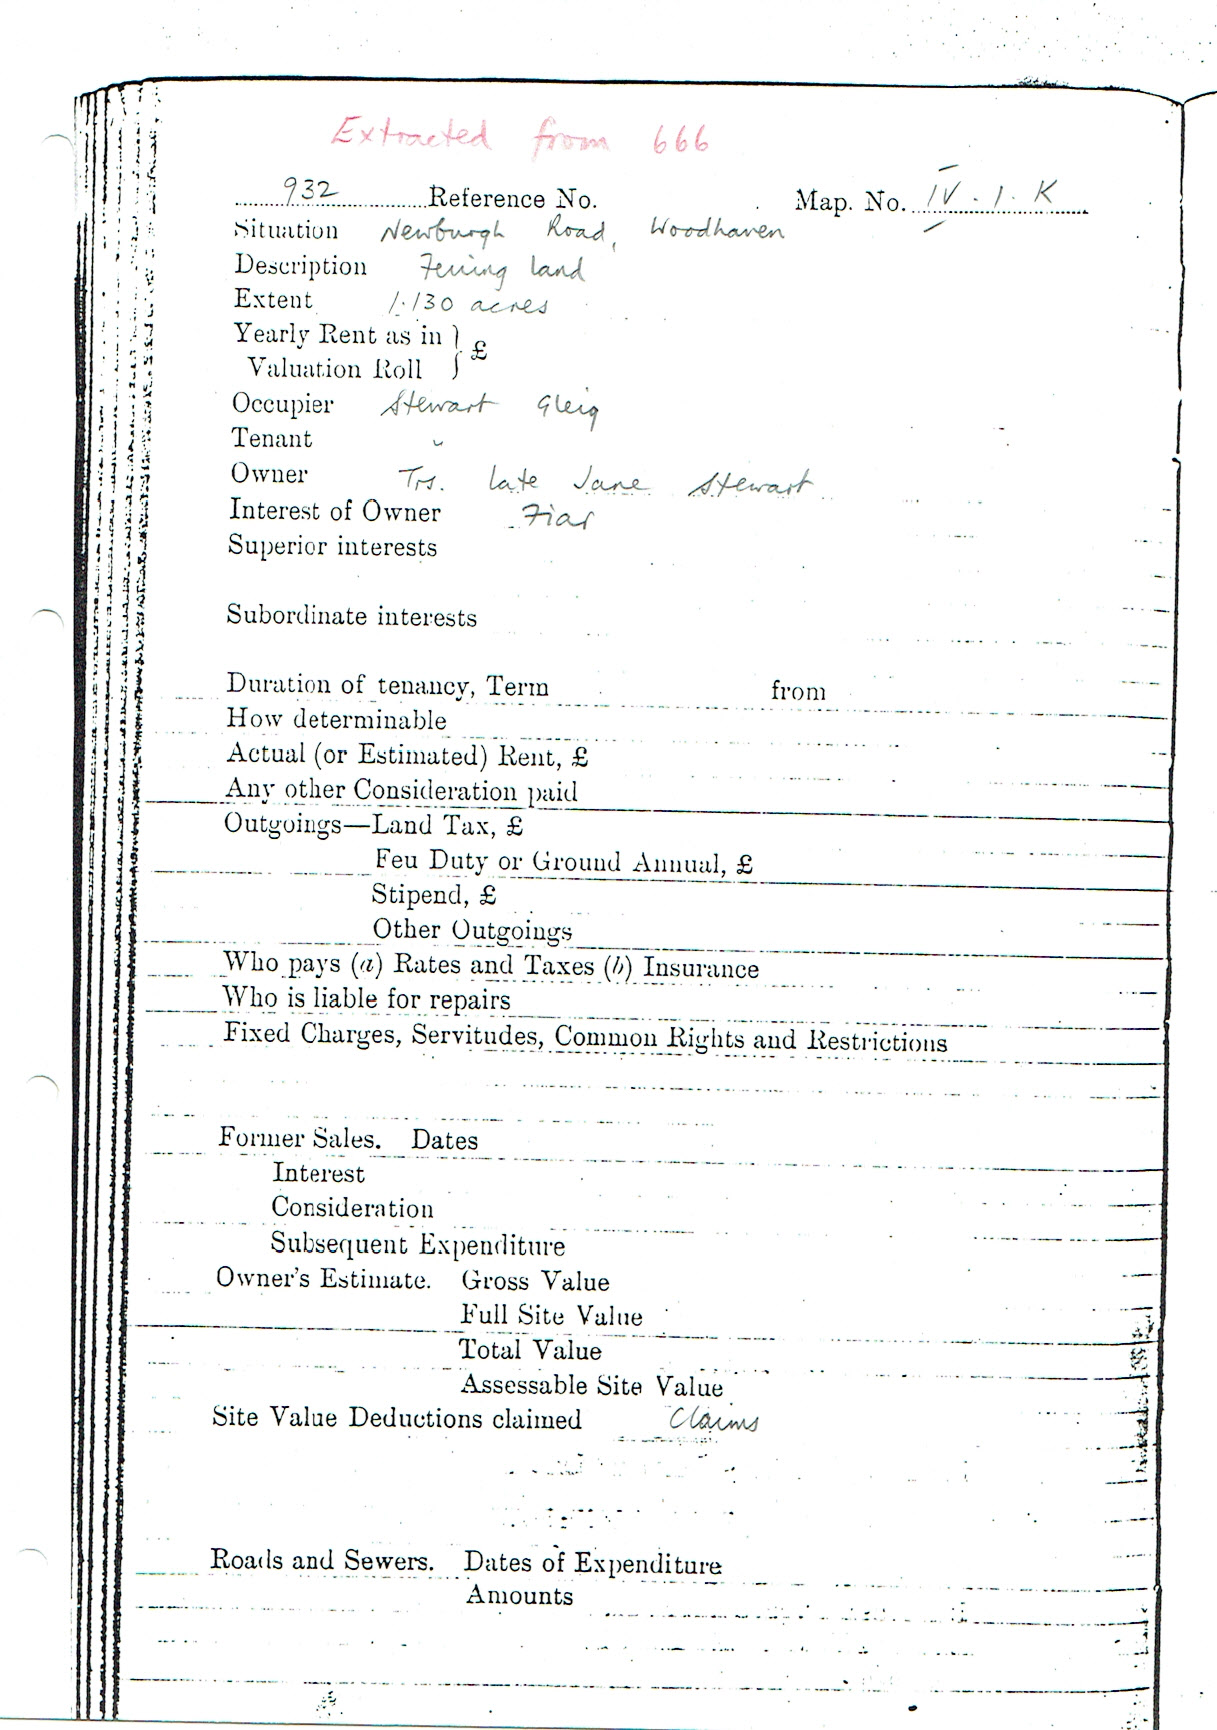 Extracted from 666
932 Reference No. Map. No. IV . 1. K
Situation Newburgh Road, Woodhaven
Description Feuing land
Extent 1.130 acres
Yearly Rent as in } £
Valuation Roll
Occupier Stewart Gleig
Tenant "
Owner Trs. late Jane Stewart
Interest of Owner Fiar
Superior interests
Subordinate interests
Duration of tenancy, Term from
How determinable
Actual (or Estimated) Rent, £
Any other Consideration paid
Outgoings—Land Tax, £
Feu Duty or Ground Annual, £
Stipend, £
Other Outgoings
Who pays (a) Rates and Taxes (b) Insurance
Who is liable for repairs
Fixed Charges, Servitudes, Common Rights and Restrictions
Former Sales. Dates
Interest
Consideration
Subsequent Expenditure
Owner's Estimate. Gross Value
Full Site Value
Total Value
Assessable Site Value
Site Value Deductions claimed Claims
Roads and Sewers. Dates of Expenditure
Amounts